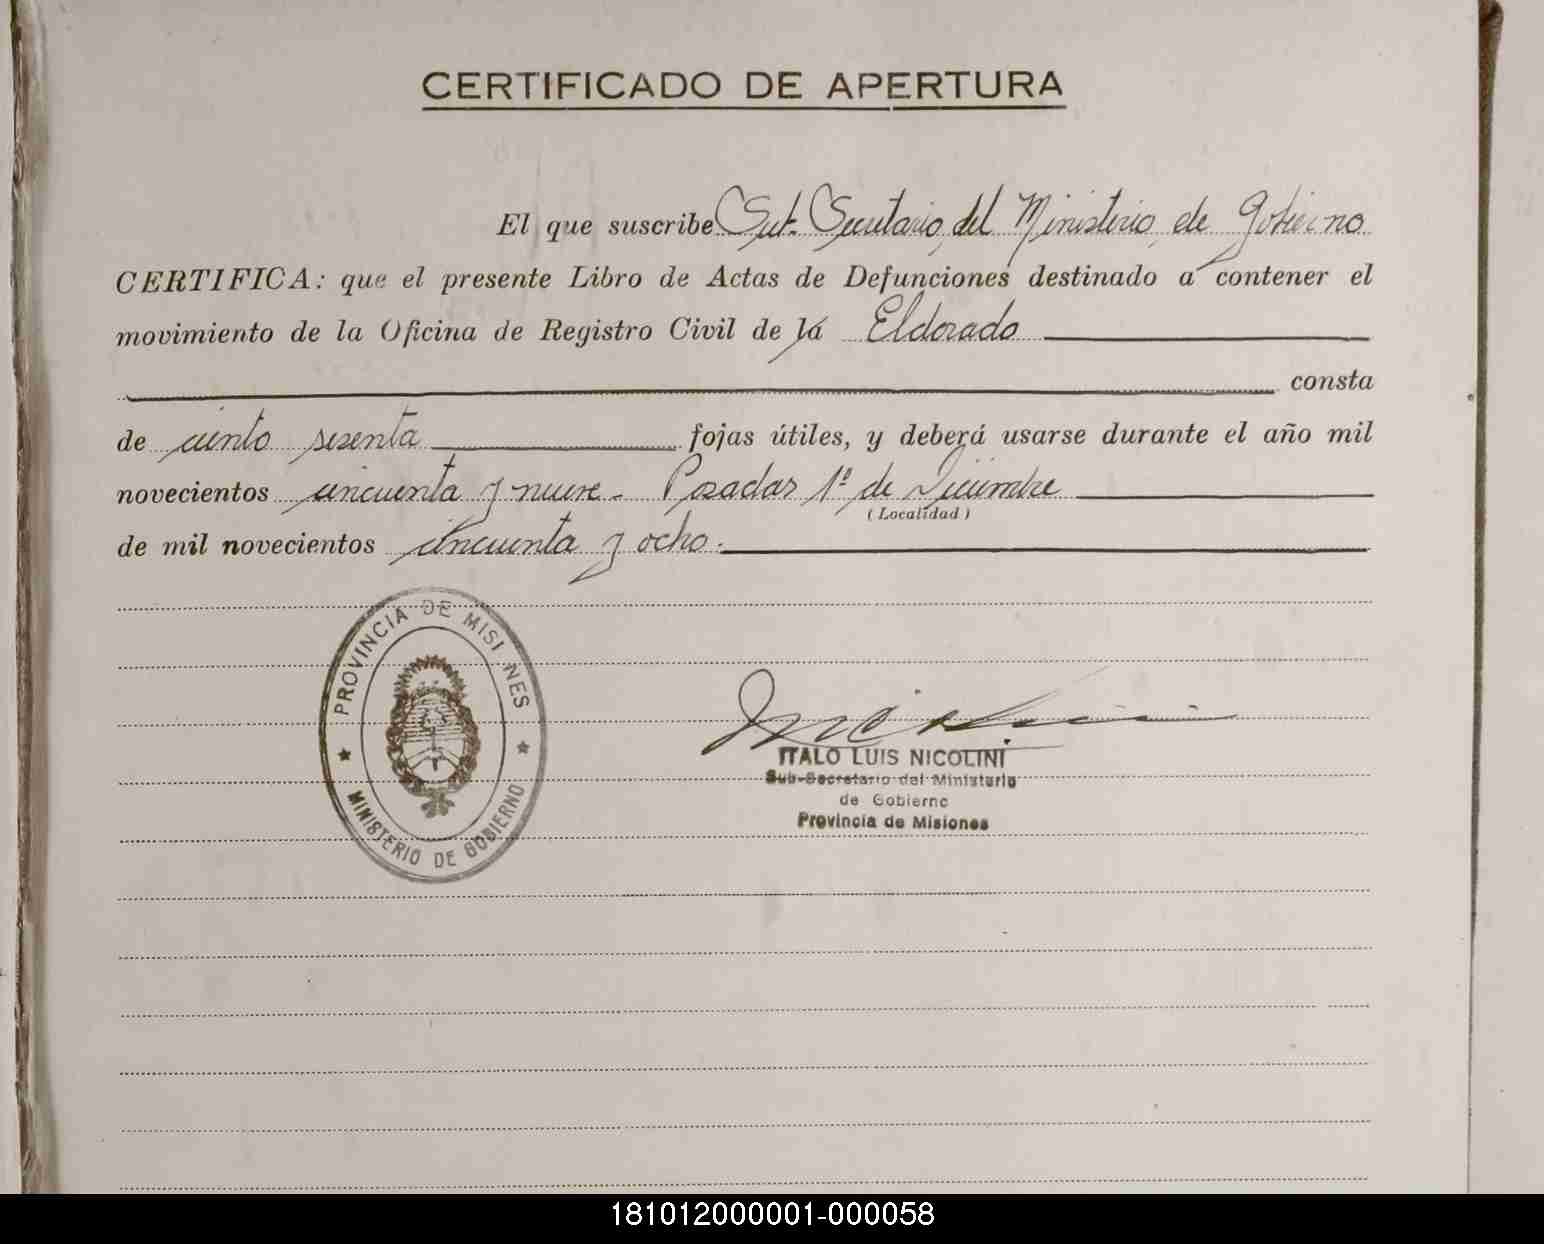 CERTIFICADO DE APERTURA
El que suscribe Sub. Secretario del Ministerio de Gobierno
CERTIFICA: que el presente Libro de Actas de Defunciones destinado a contener el
movimiento de la Oficina de Registro Civil de la Eldorado
consta
de ciento sesenta fojas útiles, y deberá usarse durante el año mil
novecientos cincuenta y nueve - Posadas 1º de Diciembre
(Localidad)
de mil novecientos cincuenta y ocho.
PROVINCIA DE MISIONES
MINISTERIO DE GOBIERNO
ITALO LUIS NICOLINI
Sub-Secretario del Ministerio
de Gobierno
Provincia de Misiones
181012000001-000058